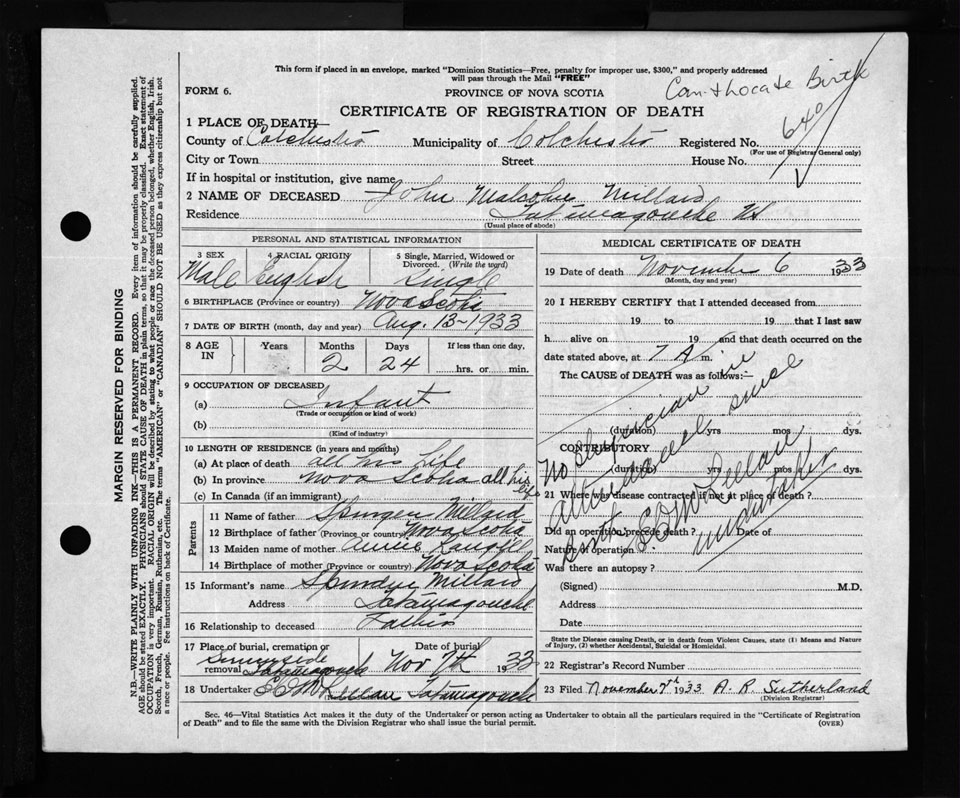 This form if placed in an envelope, marked "Dominion Statistics—Free, penalty for improper use, $300," and properly addressed
will pass through the Mail "FREE"
FORM 6.
PROVINCE OF NOVA SCOTIA
Birth
CERTIFICATE OF REGISTRATION OF DEATH
640
1 PLACE OF DEATH—
County of Colchester Municipality of Colchester Registered No.
(For use of Registrar General only)
City or Town Street House No.
If in hospital or institution, give name
2 NAME OF DECEASED John Malcolm Millard
Residence Tatamagouche NS
(Usual place of abode)
PERSONAL AND STATISTICAL INFORMATION
3 SEX 4 RACIAL ORIGIN 5 Single, Married, Widowed or
Divorced. (Write the word)
Male English Single
6 BIRTHPLACE (Province or country) Nova Scotia
7 DATE OF BIRTH (month, day and year) Aug. 13-1933
8 AGE IN Years Months Days If less than one day,
2 24 hrs. or min.
9 OCCUPATION OF DECEASED
(a) Infant
(Trade or occupation or kind of work)
(b)
(Kind of industry)
10 LENGTH OF RESIDENCE (in years and months)
(a) At place of death all his life
(b) In province Nova Scotia all his life
(c) In Canada (if an immigrant)
Parents
11 Name of father Millard
12 Birthplace of father (Province or country) Nova Scotia
13 Maiden name of mother Annie
14 Birthplace of mother (Province or country) Nova Scotia
15 Informant's name Millard
Address Tatamagouche
16 Relationship to deceased Father
17 Place of burial, cremation or removal Date of burial
Sunnyside
Tatamagouche Nov 7th 1933
18 Undertaker Tatamagouche
MEDICAL CERTIFICATE OF DEATH
19 Date of death November 6 1933
(Month, day and year)
20 I HEREBY CERTIFY that I attended deceased from
19 to 19 that I last saw
h alive on 19 and that death occurred on the
date stated above, at 7 A m.
The CAUSE of DEATH was as follows:—
No Physician in
attendance since
birth
undertaker
(duration) yrs mos dys.
CONTRIBUTORY
(duration) yrs mos dys.
21 Where was disease contracted if not at place of death?
Did an operation precede death? Date of
Nature of operation
Was there an autopsy?
(Signed) M.D.
Address
Date
State the Disease causing Death, or in death from Violent Causes, state (1) Means and Nature
of Injury, (2) whether Accidental, Suicidal or Homicidal.
22 Registrar's Record Number
23 Filed November 7th 1933 A. R. Sutherland
(Division Registrar)
Sec. 46—Vital Statistics Act makes it the duty of the Undertaker or person acting as Undertaker to obtain all the particulars required in the "Certificate of Registration
of Death" and to file the same with the Division Registrar who shall issue the burial permit. (OVER)
MARGIN RESERVED FOR BINDING
N.B.—WRITE PLAINLY WITH UNFADING INK—THIS IS A PERMANENT RECORD. Every item of information should be carefully supplied.
AGE should be stated EXACTLY. PHYSICIANS should STATE CAUSE OF DEATH in plain terms, so that it may be properly classified. Exact statement of
OCCUPATION is very important. RACIAL ORIGIN will be described by stating to what people or race the deceased person belonged, whether English, Irish,
Scotch, French, German, Russian, Ruthenian, etc. The terms "AMERICAN" or "CANADIAN" SHOULD NOT BE USED as they express citizenship but not
a race or people. See instructions on back of Certificate.